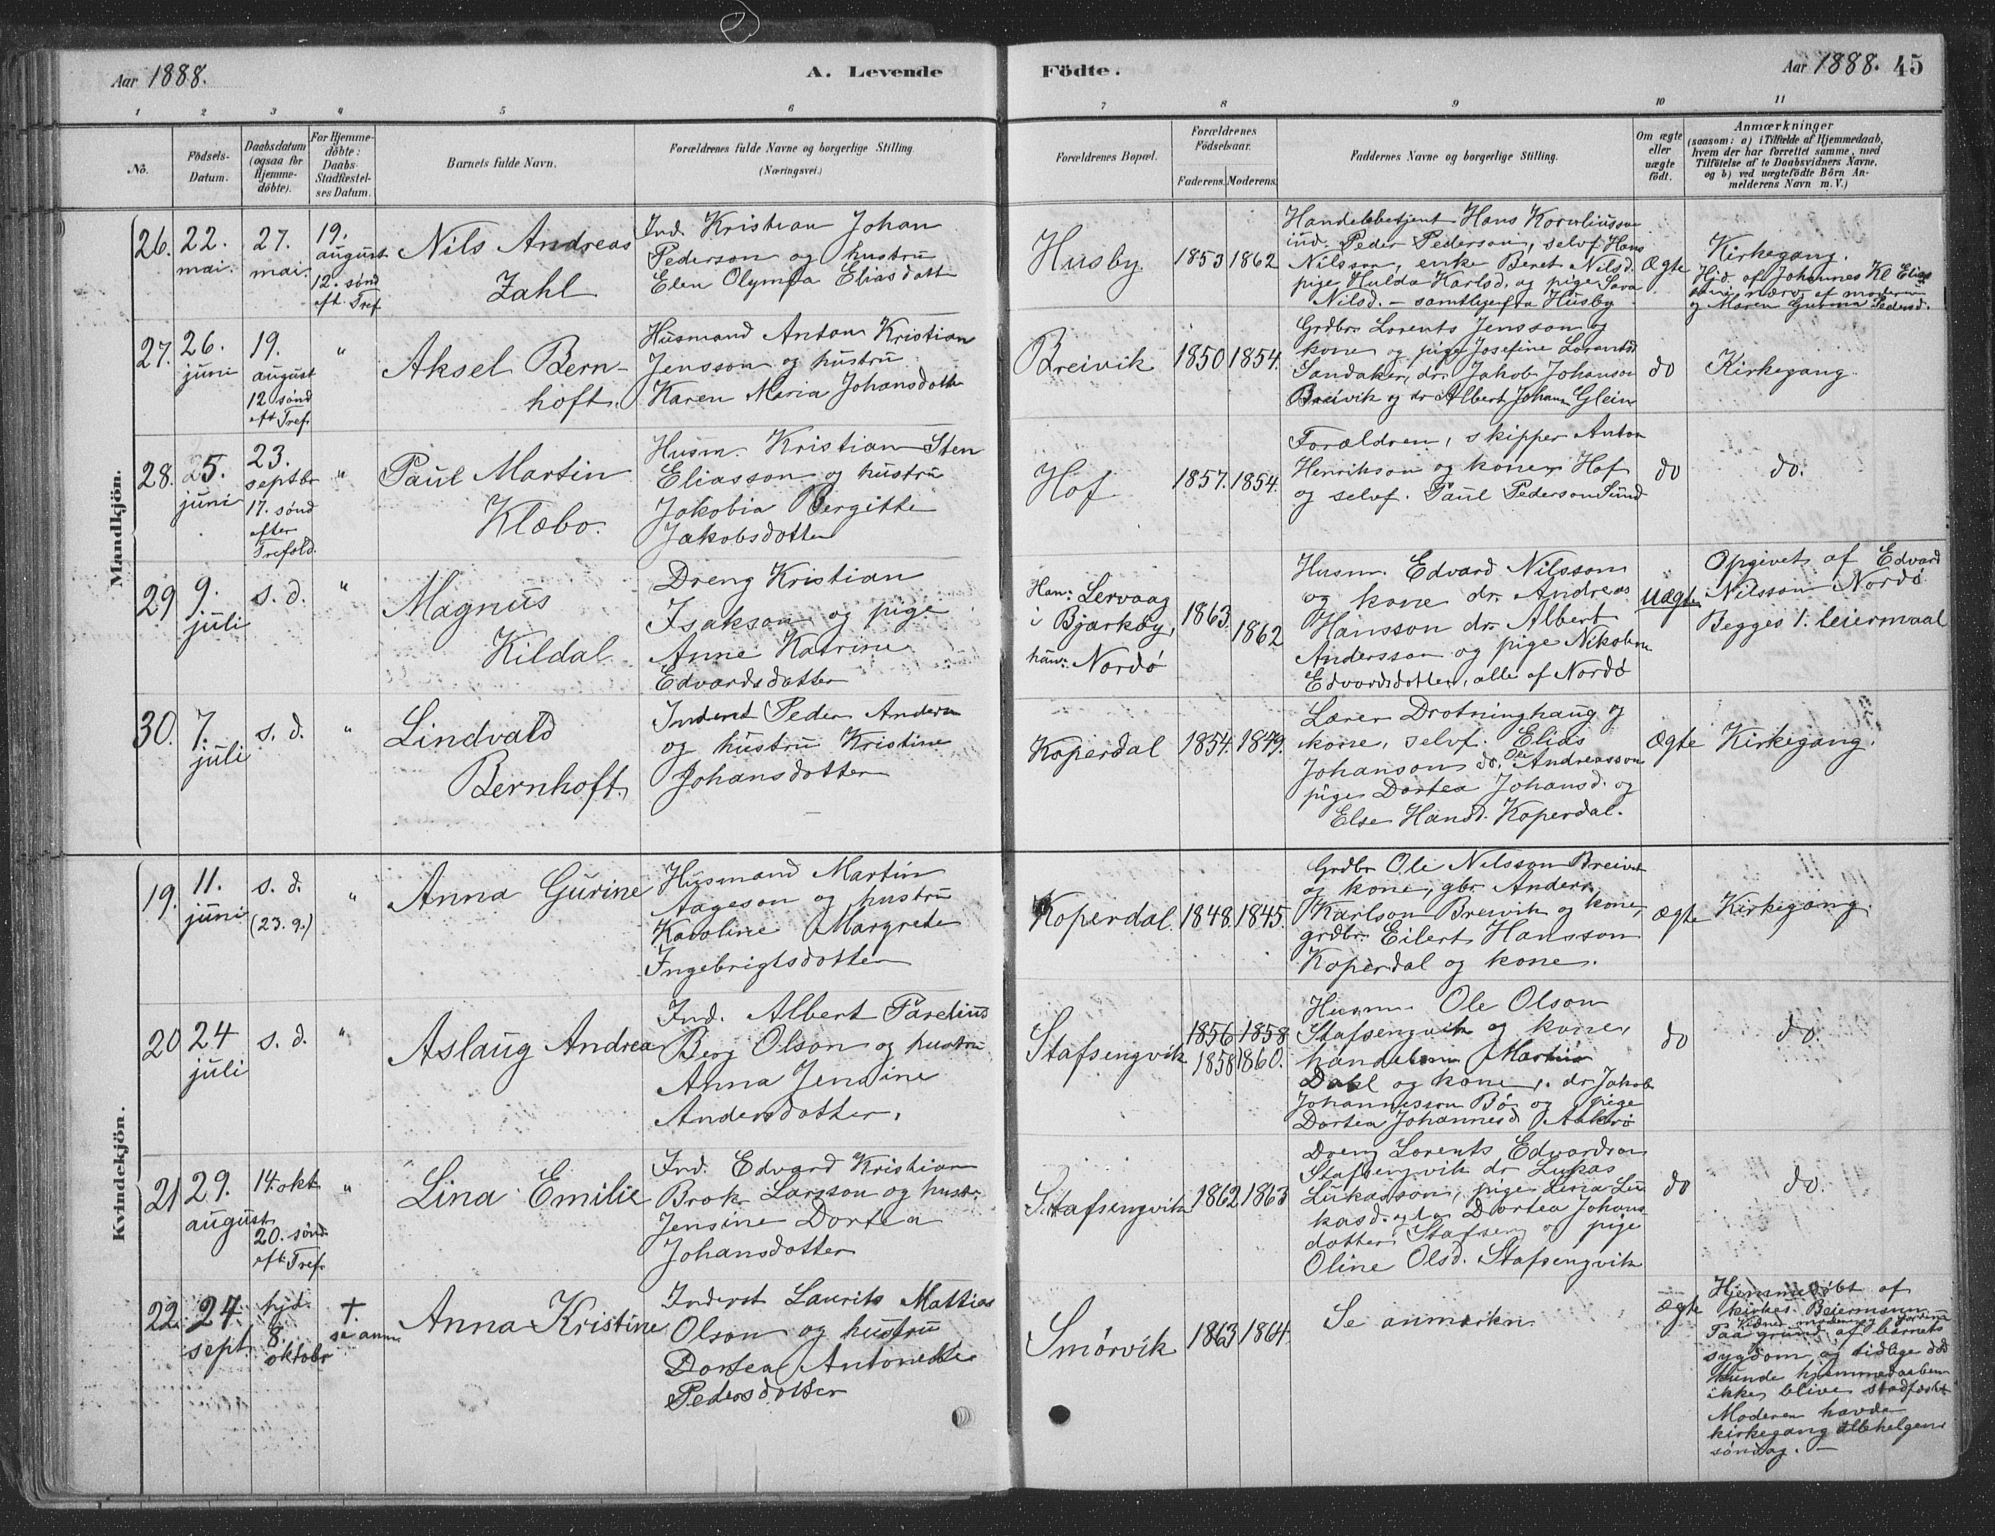 Aar 1888.
A. Levende
Födte.
Aar 1888. 45
1 2 3 4 5 6 7 8 9 10 11
No.
Födsels-
Datum.
Daabsdatum
(ogsaa for
Hjemme-
döbte).
For Hjemme-
döbte:
Daabs-
Stadfæstel-
ses Datum.
Barnets fulde Navn.
Forældrenes fulde Navne og borgerlige Stilling
(Næringsvei.)
Forældrenes Bopæl.
Forældrenes
Födselsaar.
Faderens. Moderens.
Faddernes Navne og borgerlige Stilling.
Om ægte
eller
uægte
födt.
Anmærkninger
(saasom: a) i Tilfælde af Hjemmedaab,
hvem der har forrettet samme, med
Tilföielse af to Daabsvidners Navne,
og b) ved uægtefödte Börn An-
melderens Navn m. V.)
Mandkjön.
26.
22.
mai.
27.
mai.
19.
august
12. sønd
eft. Tref
Nils Andreas
Zahl
Ind. Kristian Johan
Pederson og hustru
Elen Olympia Eliasdatt
Husby
1853 1862
Handelsbetjent Hans Korneliusson
ind. Peder Pederson, selvf. Hans
Nilsson, enke Beret Nilsd.
pige Hulda Karlsd. og pige
Nilsd. – samtlige fra Husby
Ægte
Kirkegang.
Hjd. af Johannes Kl Elias
nærv. af moderen
og Maren Gurina Pedersd.
27.
26.
juni
19.
august
12 sønd
eft. Tref.
"
Aksel Bern-
hoft.
Husmand Anton Kristian
Jensson og hustru
Karen Maria Johansdott
Breivik
1850 1854.
Grdbr. Lorents Jensson og
kone og pige Josefine Lorentsd
Sandaker, dr. Jakob Johanson
Breivik og dr Albert Johans Glein
do
Kirkegang.
28.
25.
juni
23.
septbr
17. sønd
efter
Trefold.
"
Paul Martin
Klæbo.
Husm. Kristian Sten
Eliasson og hustru
Jakobia Bergitte
Jakobsdotter
Hof
1857. 1854.
Forældren, skipper Anton
Henrikson og kone Hof
og selvf. Paul Pederson Sund
do
do.
29
9.
juli
s. d.
"
Magnus
Kildal
Dreng Kristian
Isakson og pige
Anne Katrine
Edvardsdotter
Han: Lervaag
i Bjarkøy,
hun: Nordø
1863.
1862
Husm. Edvard Nilsson
og kone dr. Andreas
Hansson dr. Albert
Andersson og pige Nikoline
Edvardsdotter, alle af Nordø
Uægte
Opgivet af Edvard
Nilsson Nordø
Begges 1. leiermaal
30.
7.
juli
s. d.
"
Lindvald
Bernhoft.
Inderst Peder Anders
og hustru Kristine
Johansdotter
Koperdal
1854. 1849.
Lærer Drotninghaug og
kone, selvf. Elias
Johanson do. Ole Andreasson
pige Dortea Johansd. og
Else Hansd. Koperdal.
Ægte
Kirkegang.
Kvindekjön.
19.
11.
juni
s. d.
(23. 9.)
"
Anna Gurine
Husmand Martin
Aageson og hustru
Karoline Margrete
Ingebrigtsdotter
Koperdal.
1848. 1845.
Grdbr Ole Nilsson Breivik
og kone, gbr. Anders
Karlson Breivik og kone,
grdbr. Eilert Hansson
Koperdal og kone.
Ægte
Kirkegang.
20
24
juli
s. d.
"
Aslaug Andrea
Ind. Albert Parelius
Berg Olson og hustru
Anna Jensine
Andersdotter.
Stafsengvik
1856 1858
1858 1860.
Husm Ole Olson
Stafsengvik og kone,
handelsm Martin
Dahl og kone, dr Jakob
Johannessen Bø og pige
Dortea Johannesd.
do
do.
21
29.
august
14. okt
20. sønd
eft. Tref.
"
Lina Emilie
Ind. Edvard Kristian
Brok Larsson og hust.
Jensine Dortea
Johansdotter
Stafsengvik
1862 1863
Dreng Lorents Edvardson
Stafsengvik dr Lukas
Lukasson, pige Lina Lu
kasd. Dortea Johans
dotter Stafseng og pige
Oline Olsd. Stafsengvik
do
do.
22.
24.
sept
hjd.
8.
oktobr
†.
se anm
Anna Kristine
Inderst Laurits Mattias
Olson og hustru
Dortea Antonette
Pedersdotter
Smørvik
1863 1864.
Se anmærkn
Ægte
Hjemmedøbt af
Beiermann
Paa grund af barnets
sygdom og tidlige død
kunde hjemmedaaben
ikke blive stadfæstet
Moderen havde
kirkegang allehelgens
søndag. –